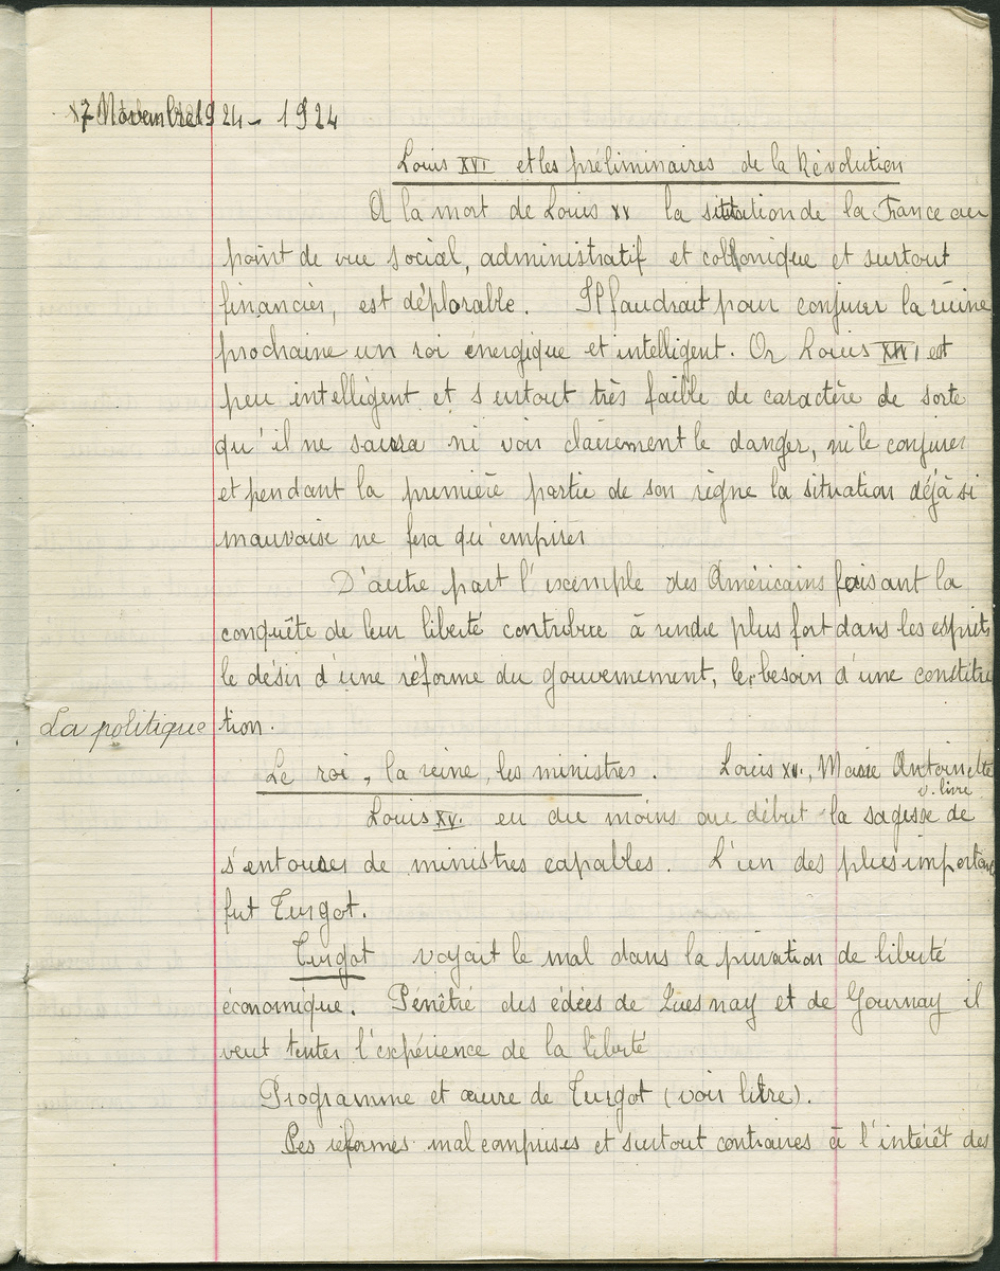 7 Novembre 1924 - 1924
Louis XVI et les préliminaires de la Révolution
A la mort de Louis XV la situation de la France au
point de vue social, administratif et et surtout
financier, est déplorable. Il faudrait pour conjurer la ruine
prochaine un roi énergique et intelligent. Or Louis XVI est
peu intelligent et surtout très faible de caractère de sorte
qu'il ne saura ni voir clairement le danger, ni le conjurer
et pendant la première partie de son règne la situation déjà si
mauvaise ne fera qu'empirer
D'autre part l'exemple des Américains faisant la
conquête de leur liberté contribue à rendre plus fort dans les esprits
le désir d'une réforme du gouvernement, le besoin d'une constitu
La politique
tion.
Le roi, la reine, les ministres. Louis XV., Marie Antoinette
v. livre
Louis XV. eu du moins au début la sagesse de
s'entourer de ministres capables. L'un des plus important
fut Turgot.
Turgot voyait le mal dans la privation de liberté
économique. Pénétré des édées de Quesnay et de Gournay il
veut tenter l'expérience de la liberté
Programme et œuvre de Turgot (voir litre).
Les réformes mal comprises et surtout contraires à l'intérêt des